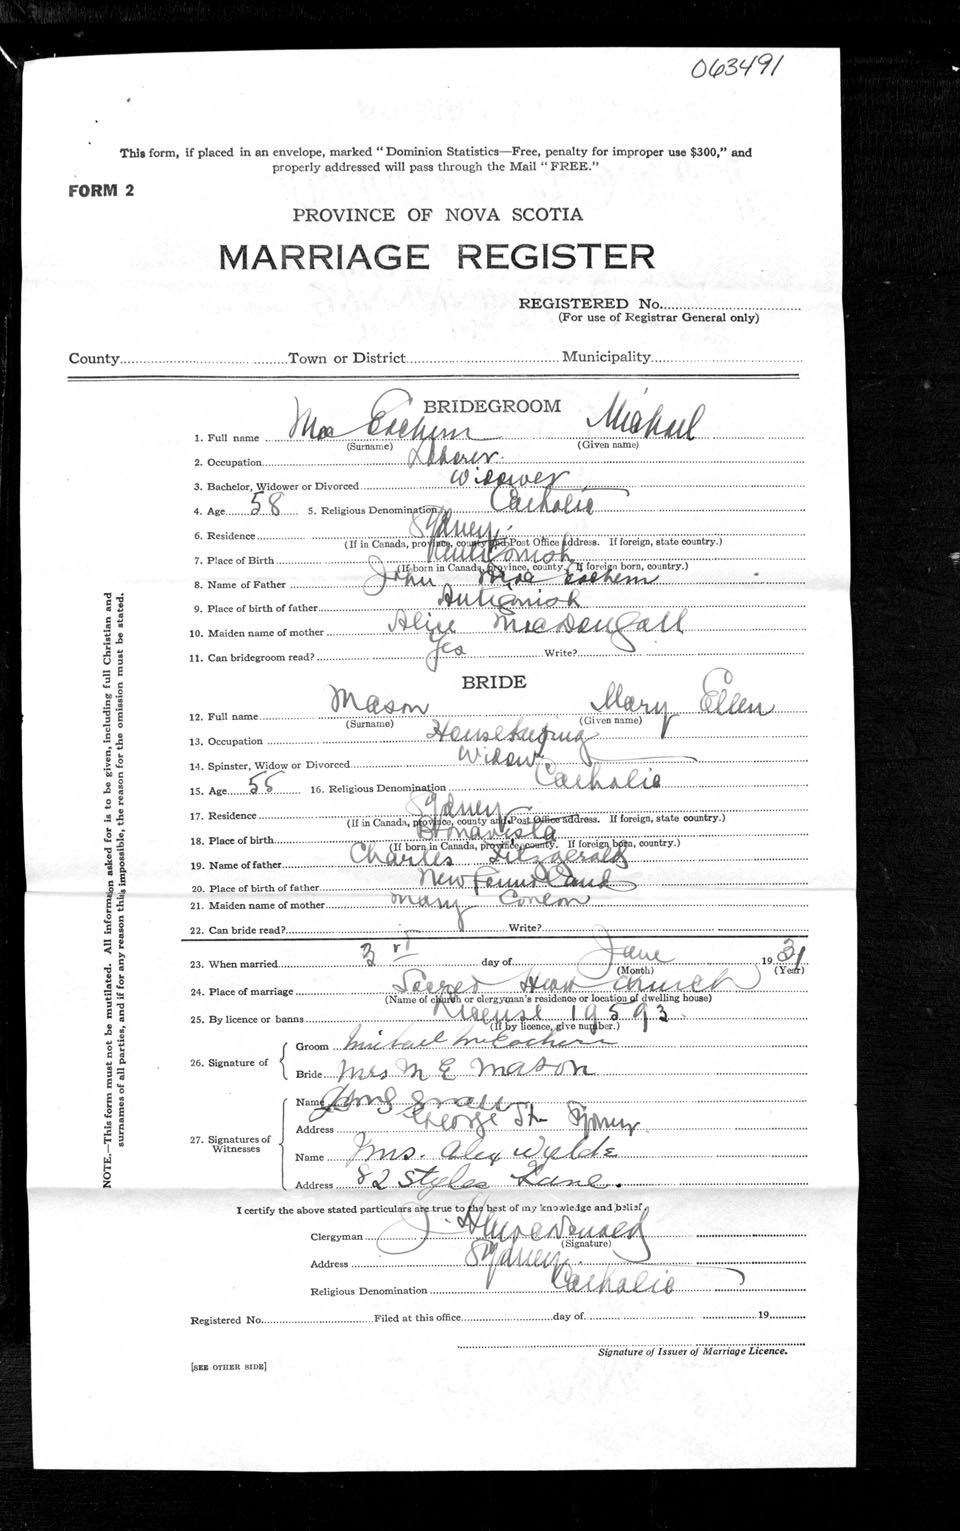 063491
This form, if placed in an envelope, marked "Dominion Statistics—Free, penalty for improper use $300," and
properly addressed will pass through the Mail "FREE."
FORM 2
PROVINCE OF NOVA SCOTIA
MARRIAGE REGISTER
REGISTERED No.
(For use of Registrar General only)
County Town or District Municipality
BRIDEGROOM
1. Full name Mac Eachern Michael
(Surname) (Given name)
2. Occupation Laborer
3. Bachelor, Widower or Divorced Widower
4. Age 58 5. Religious Denomination Catholic
6. Residence Sydney
(If in Canada, province, county and Post Office Address. If foreign, state country.)
7. Place of Birth Antigonish
(If born in Canada, province, county. If foreign born, country.)
8. Name of Father John Mac Eachern
9. Place of birth of father Antigonish
10. Maiden name of mother Alice MacDougall
11. Can bridegroom read? Yes Write?
BRIDE
12. Full name Mason Mary Ellen
(Surname) (Given name)
13. Occupation Housekeeping
14. Spinster, Widow or Divorced Widow
15. Age 55 16. Religious Denomination Catholic
17. Residence Sydney
(If in Canada, province, county and Post Office address. If foreign, state country.)
18. Place of birth Bonavista
(If born in Canada, province, county. If foreign born, country.)
19. Name of father Charles Fitzgerald
20. Place of birth of father Newfoundland
21. Maiden name of mother Mary
22. Can bride read? Write?
23. When married 3rd day of June 1931
(Month) (Year)
24. Place of marriage Sacred Heart Church
(Name of church or clergyman's residence or location of dwelling house)
25. By licence or banns License 19593
(If by licence, give number.)
26. Signature of
Groom Michael McEachern
Bride Mrs M E Mason
27. Signatures of
Witnesses
Name
Address George St Sydney
Name Mrs. Alex Wylde
Address 82 Styles Lane.
I certify the above stated particulars are true to the best of my knowledge and belief,
Clergyman J.
(Signature)
Address Sydney
Religious Denomination Catholic
Registered No. Filed at this office day of 19
Signature of Issuer of Marriage Licence.
[SEE OTHER SIDE]
NOTE.—This form must not be mutilated. All information asked for is to be given, including full Christian and
surnames of all parties, and if for any reason this is impossible, the reason for the omission must be stated.